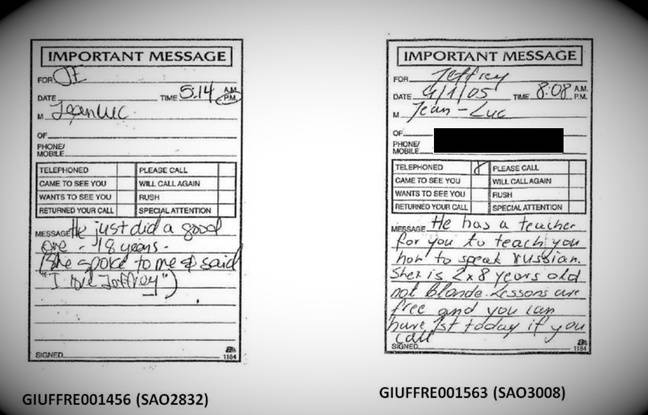 IMPORTANT MESSAGE
FOR JE
DATE TIME 5:14 A.M. P.M.
M Jean Luc
OF
PHONE/
MOBILE
TELEPHONED PLEASE CALL
CAME TO SEE YOU WILL CALL AGAIN
WANTS TO SEE YOU RUSH
RETURNED YOUR CALL SPECIAL ATTENTION
MESSAGE He just did a good
one - 18 years -
(She spoke to me & said
"I love Jeffrey")
SIGNED 1184
GIUFFRE001456 (SAO2832)
IMPORTANT MESSAGE
FOR Jeffrey
DATE /1/05 TIME 8:08 A.M. P.M.
M Jean-Luc
OF
PHONE/
MOBILE
TELEPHONED PLEASE CALL
CAME TO SEE YOU WILL CALL AGAIN
WANTS TO SEE YOU RUSH
RETURNED YOUR CALL SPECIAL ATTENTION
MESSAGE He has a teacher
for you to teach you
how to speak russian.
She is 2x8 years old
not blonde. Lessons are
free and you can
have 1st today if you
call
SIGNED 1184
GIUFFRE001563 (SAO3008)